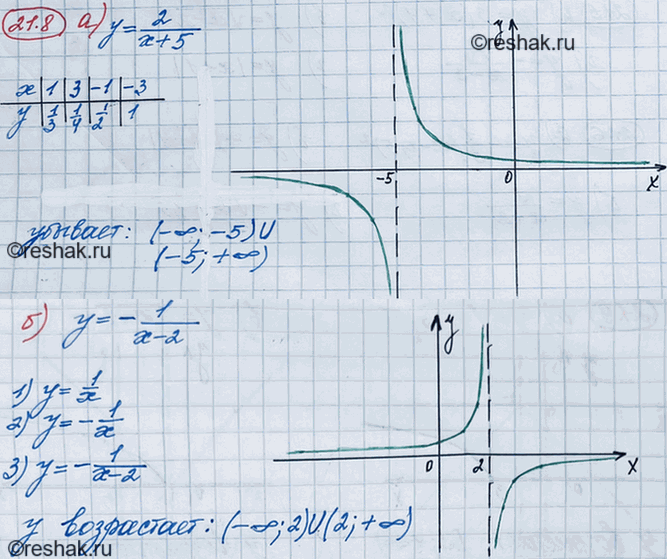 21.8 а) y = 2/(x+5)
©reshak.ru
x | 1 | 3 | -1 | -3
y | 1/3 | 1/4 | 1/2 | 1
y
-5 0 x
убывает: (-∞; -5)∪
(-5; +∞)
©reshak.ru
б) y = - 1/(x-2)
y
1) y = 1/x
2) y = - 1/x
3) y = - 1/(x-2)
0 2 x
y возрастает: (-∞; 2)∪(2; +∞)
©reshak.ru